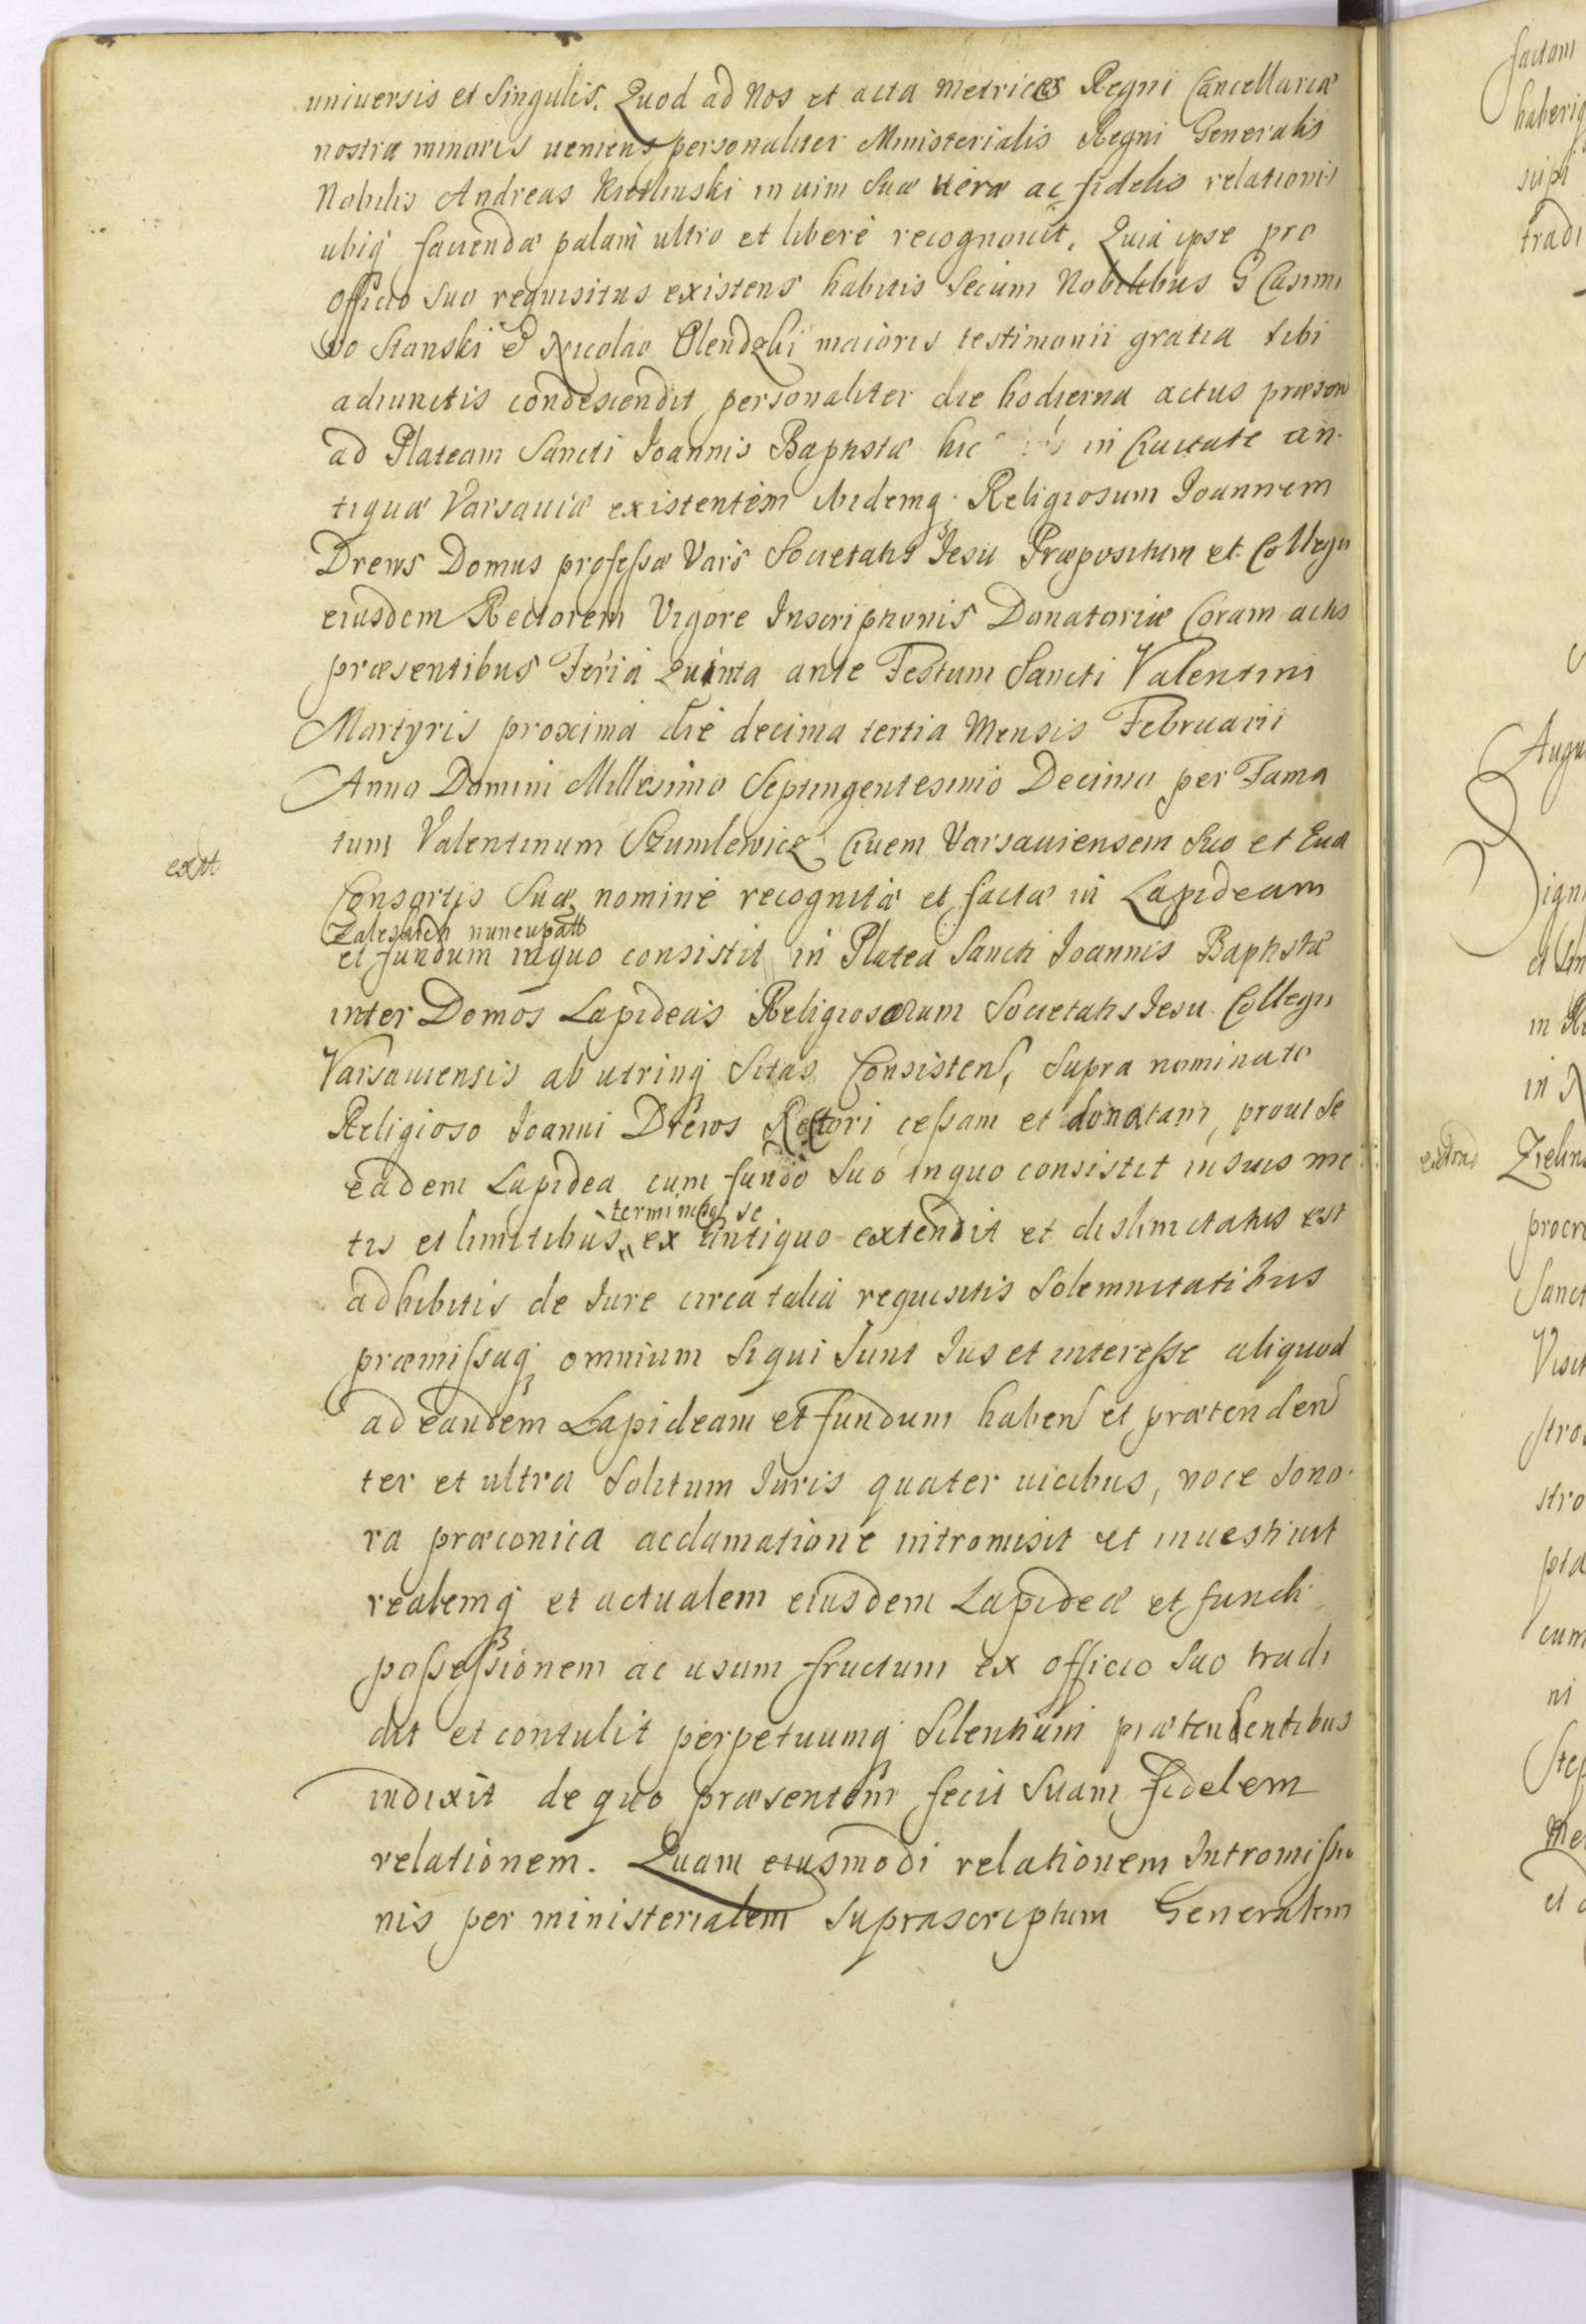 universis et Singulis. Quod ad Nos et acta Metrices Regni Cancellariæ
nostræ minoris veniens personaliter Ministerialis Regni Generalis
Nobilis Andreas in vim Suæ veræ ac fidelis relationis
ubiq faciendæ palam ultro et liberè recognouit, Quia ipse pro
officio suo requisitus existens habitis Secum Nobilibus G Casimi
ro Stanski & Nicolao Olendzki maioris testimonii gratia Sibi
adiunctis condescendit personaliter die hodierna actus præsen
ad Plateam Sancti Joannis Baptistæ hic in Ciuitate an
tiquæ Varsauiæ existentem ibidemq Religiosum Joannem
Drews Domus professæ Vars Societatis Jesu Præpositum et Collegii
eiusdem Rectorem Vigore Inscriptionis Donatoriæ Coram actis
præsentibus Feria Quinta ante Festum Sancti Valentini
Martyris proxima die decima tertia Mensis Februarii
Anno Domini Millesimo Septingentesimo Decimo per Fama
tum Valentinum Szumlewicz Ciuem Varsauiensem Suo et Euæ
exst
Consortis Suæ nomine recognitæ et factæ in Lapideam
nuncupatt
et fundum inquo consistit in Platea Sancti Joannis Baptistæ
inter Domos Lapideas Religiosorum Societatis Jesu Collegii
Varsauiensis ab utrinq Sitas Consisten, Supra nominato
Religioso Joanni Drews Rectori cessam et donatam, prout Se
eadem Lapidea cum fundo Suo inquo consistit in suis me
terminisq se
tis et limitibus ex antiquo extendit et dislimitatus est
adhibitis de Jure circa talia requisitis Solemnitatibus
præmissaq omnium Siqui Sunt Jus et interesse aliquod
ad eandem Lapideam et fundum haben et prætenden
ter et ultra Solitum Juris quater vicibus, voce Sono
ra præconica acclamatione intromisit et inuestiuit
realemq et actualem eiusdem Lapideæ et fundi
possessionem ac usum fructum ex officio Suo tradi
dit et contulit perpetuumq Silentium prætendentibus
indixit de quo præsentem fecit Suam fidelem
relationem. Quam eiusmodi relationem Intromissio
nis per ministerialem Suprascriptum Generalem
factam
tradi
in
Sanct
stro
cum
ni